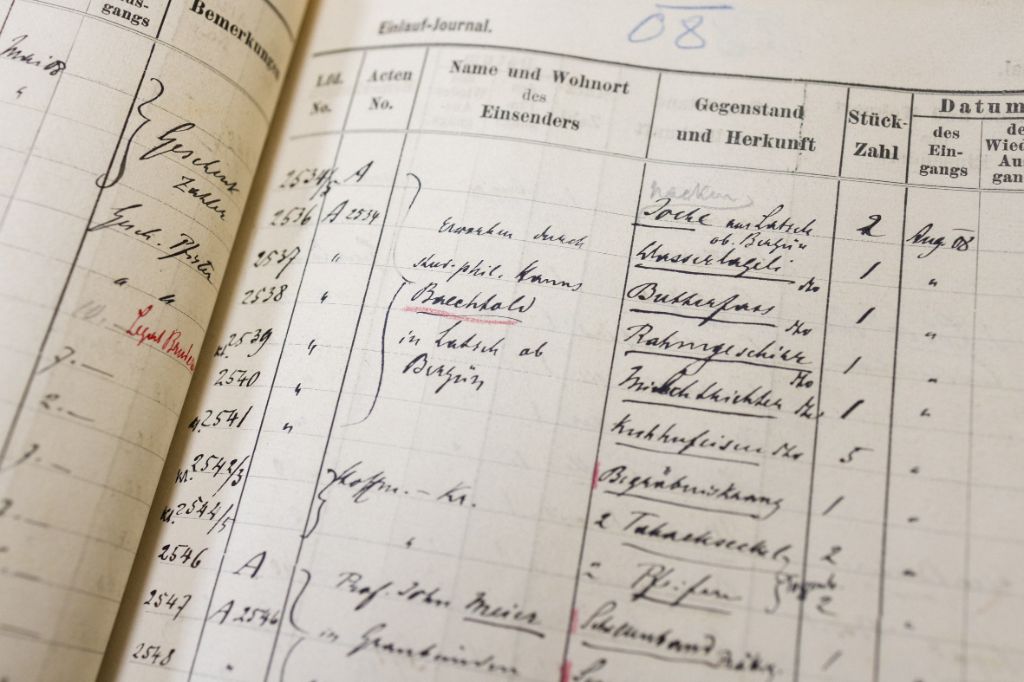 gangs
Bemerkungen
Mai 08
"
Geschenk
Zahler
Gesch. Pfister
" "
10.-
7.-
2.-
3.-
Einlauf-Journal.
08
Lfd. No.
Acten No.
Name und Wohnort
des
Einsenders
Gegenstand
und Herkunft
Stück-
Zahl
Datum
des
Ein-
gangs
de
Wied
Au
gan
2534/5 A
2536 A 2534
2537 "
2538 "
2539 "
2540 "
2541 "
2542/3
2544/5
2546 A
2547 A 2546
2548 "
Erworben durch
stud. phil. Hanns
Baechtold
in Latsch ob
Bergün
Hoffm. - Kr.
"
Prof. John Meier
in Graubünden
aus Latsch 2 Aug 08
ob. Bergün
1 "
Butterfass do 1 "
Rahmgeschirr do 1 "
Milchtrichter do 1 "
Kuhhufeisen do 5 "
Begräbniskranz 1 "
2 Tabackseckel 2 "
2 Pfeifen 2 "
Schellenband 1